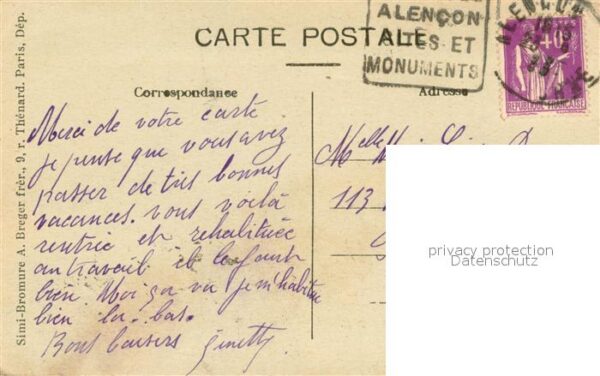 ALENÇON
SITES ET
MONUMENTS
ALENÇON
40
REPUBLIQUE FRANÇAISE
CARTE POSTALE
Correspondance
Adresse
Merci de votre carte
je pense que vous avez
passer de très bonnes
vacances. vous voilà
rentrée et rehabituée
au travail il le faut
bien. Moi ça va je m'habitue
bien la-bas.
Bons baisers Ginette
Melle
113
Simi-Bromure A. Breger frèr., 9, r. Thénard. Paris, Dép.
privacy protection
Datenschutz